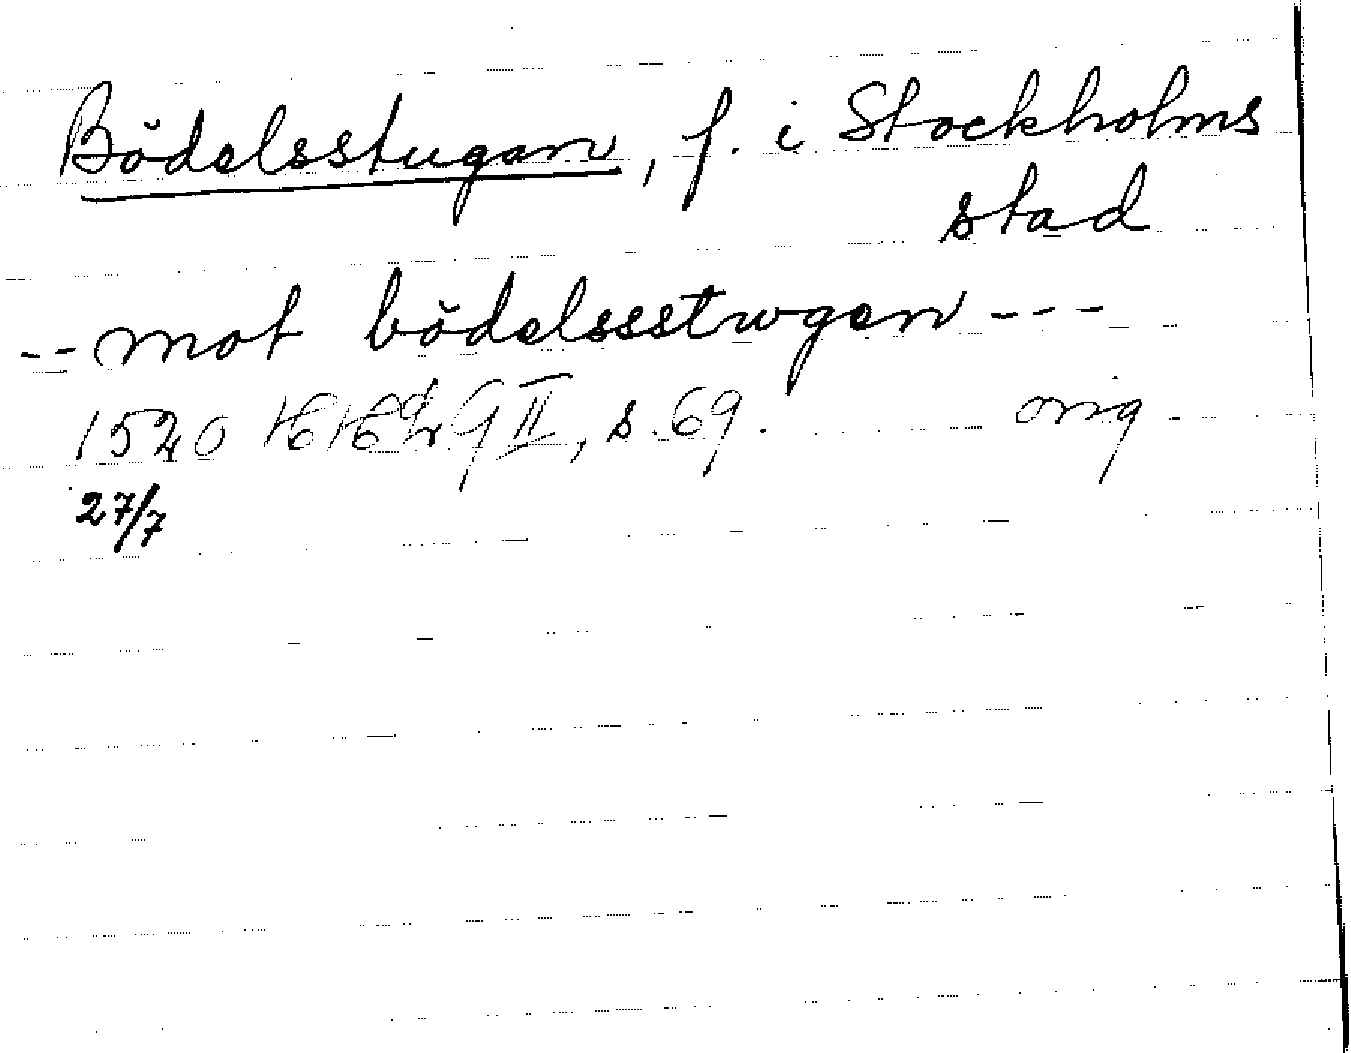 Bödelsstugan, f. i Stockholms
stad
-- mot bödelssstwgen ---
1520 II, s. 69. orig
27/7